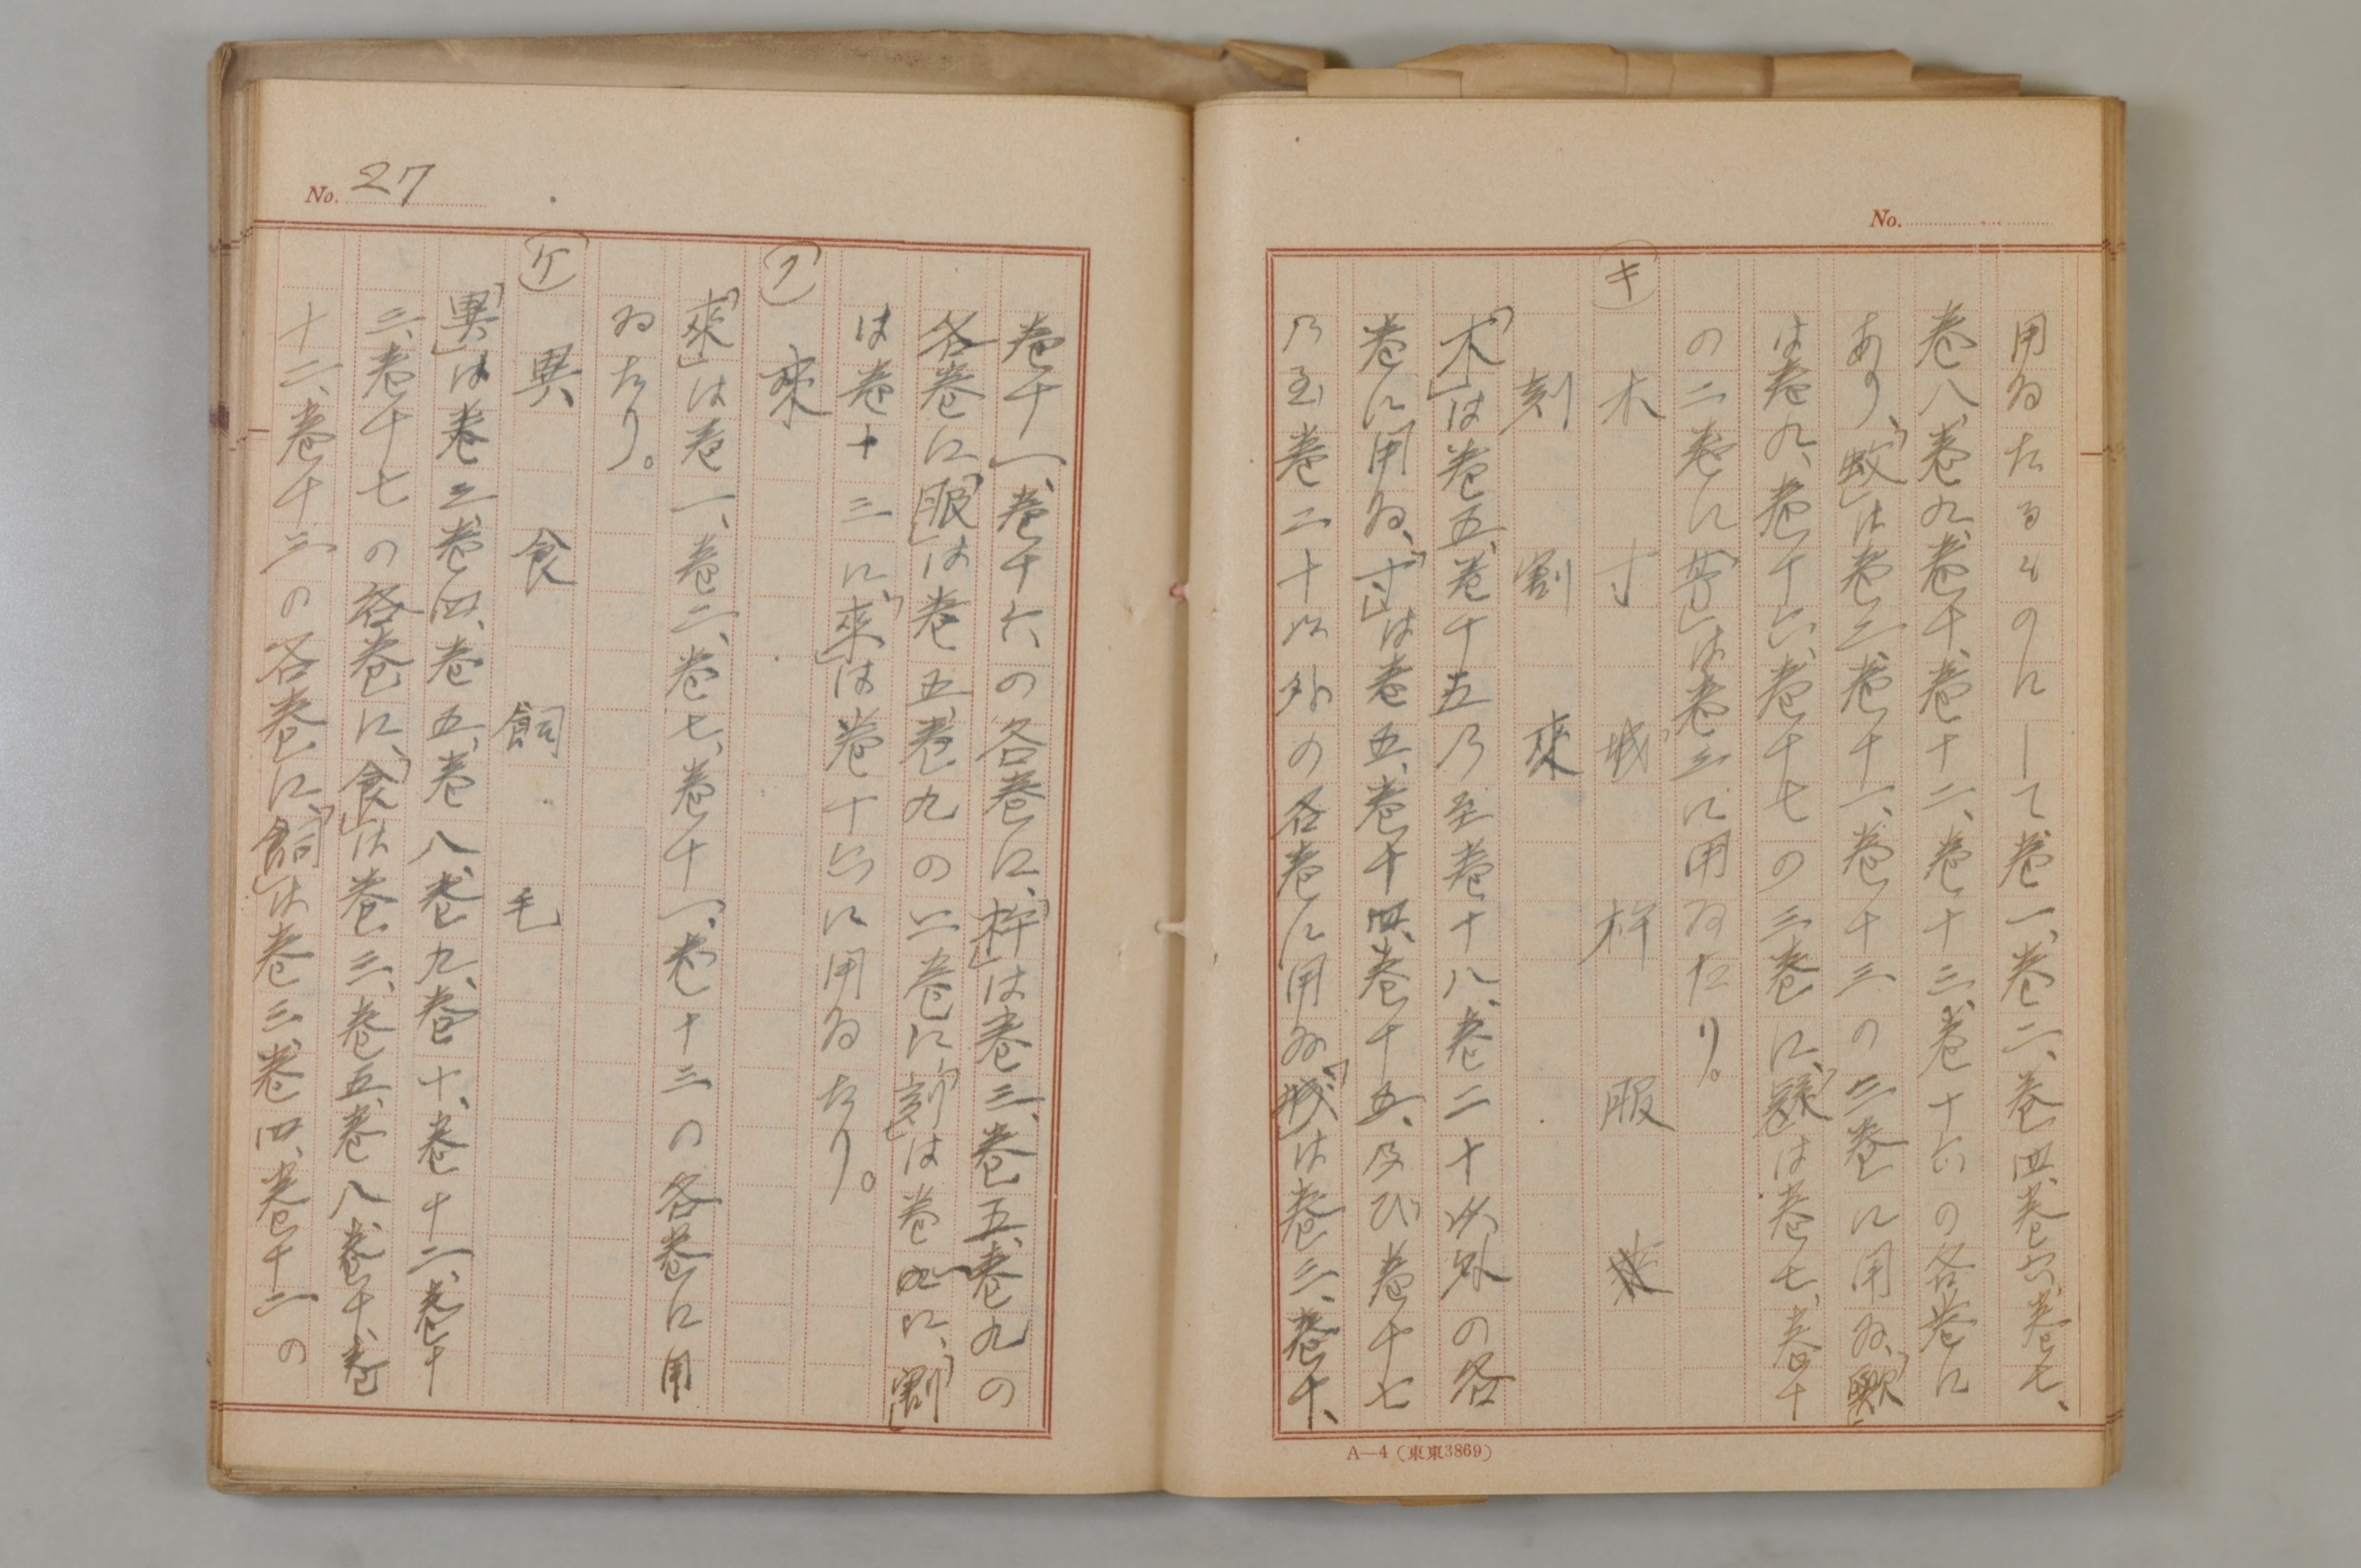 No.
用ゐたるものにして巻一、巻二、巻四、巻六、巻七、
巻八、巻九、巻十、巻十二、巻十三、巻十六の各巻に
あり、「蚊」は巻二、巻十一、巻十三の三巻に用ゐ、「歟」
は巻九、巻十六、巻十七の三巻に、「疑」は巻七、巻十
の二巻に「苛」は巻三に用ゐたり。
㋖ 木 寸 城 杵 服
刻 割 來
「木」は巻五、巻十五乃至巻十八、巻二十以外の各
巻に用ゐ、「寸」は巻五、巻十四、巻十五、及び巻十七
乃至巻二十以外の各巻に用ゐ「城」は巻三、巻十、
A—4（東東3869）
No. 27
巻十一、巻十六の各巻に、「杵」は巻三、巻五、巻九の
各巻に、「服」は巻五、巻九の二巻に「刻」は巻四に、「割」
は巻十三に「來」は巻十六に用ゐたり。
㋗ 來
「來」は巻一、巻二、巻七、巻十一、巻十三の各巻に用
ゐたり。
㋘ 異 食 飼 毛
「異」は巻二、巻四、巻五、巻八、巻九、巻十、巻十二、巻十
三、巻十七の各巻に、「食」は巻三、巻五、巻八、巻十、巻
十二、巻十三の各巻に、「飼」は巻三、巻四、巻十一の